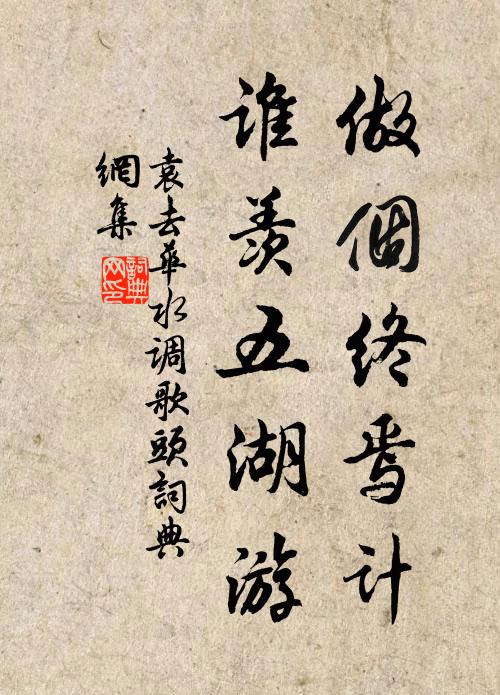 做個終焉計
誰羨五湖游
袁去華水调歌頭詞典
網集
詞典
网印